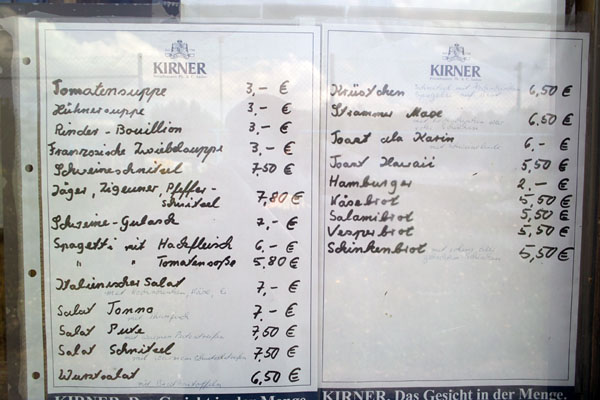 KIRNER
Tomatensuppe 3,- €
Hühnersuppe 3,- €
Rinder-Bouillion 3,- €
Französische Zwiebelsuppe 3,- €
Schweineschnitzel 7,50 €
Jäger, Zigeuner, Pfeffer-
Schnitzel 7,80 €
Schweine-Gulasch 7,- €
Spagetti mit Hackfleisch 6,- €
" " Tomatensoße 5,80 €
Italienischer Salat 7,- €
Salat Tonno 7,- €
Salat Pute 7,50 €
Salat Schnitzel 7,50 €
Wurstsalat 6,50 €
mit Bratkartoffeln
KIRNER. Das Gesicht in der Menge.
KIRNER
Krüstchen 6,50 €
Strammer Max 6,50 €
Toast ala Karin 6,- €
Toast Hawaii 5,50 €
Hamburger 2,- €
Käsebrot 5,50 €
Salamibrot 5,50 €
Vesperbrot 5,50 €
Schinkenbrot 5,50 €
KIRNER. Das Gesicht in der Menge.